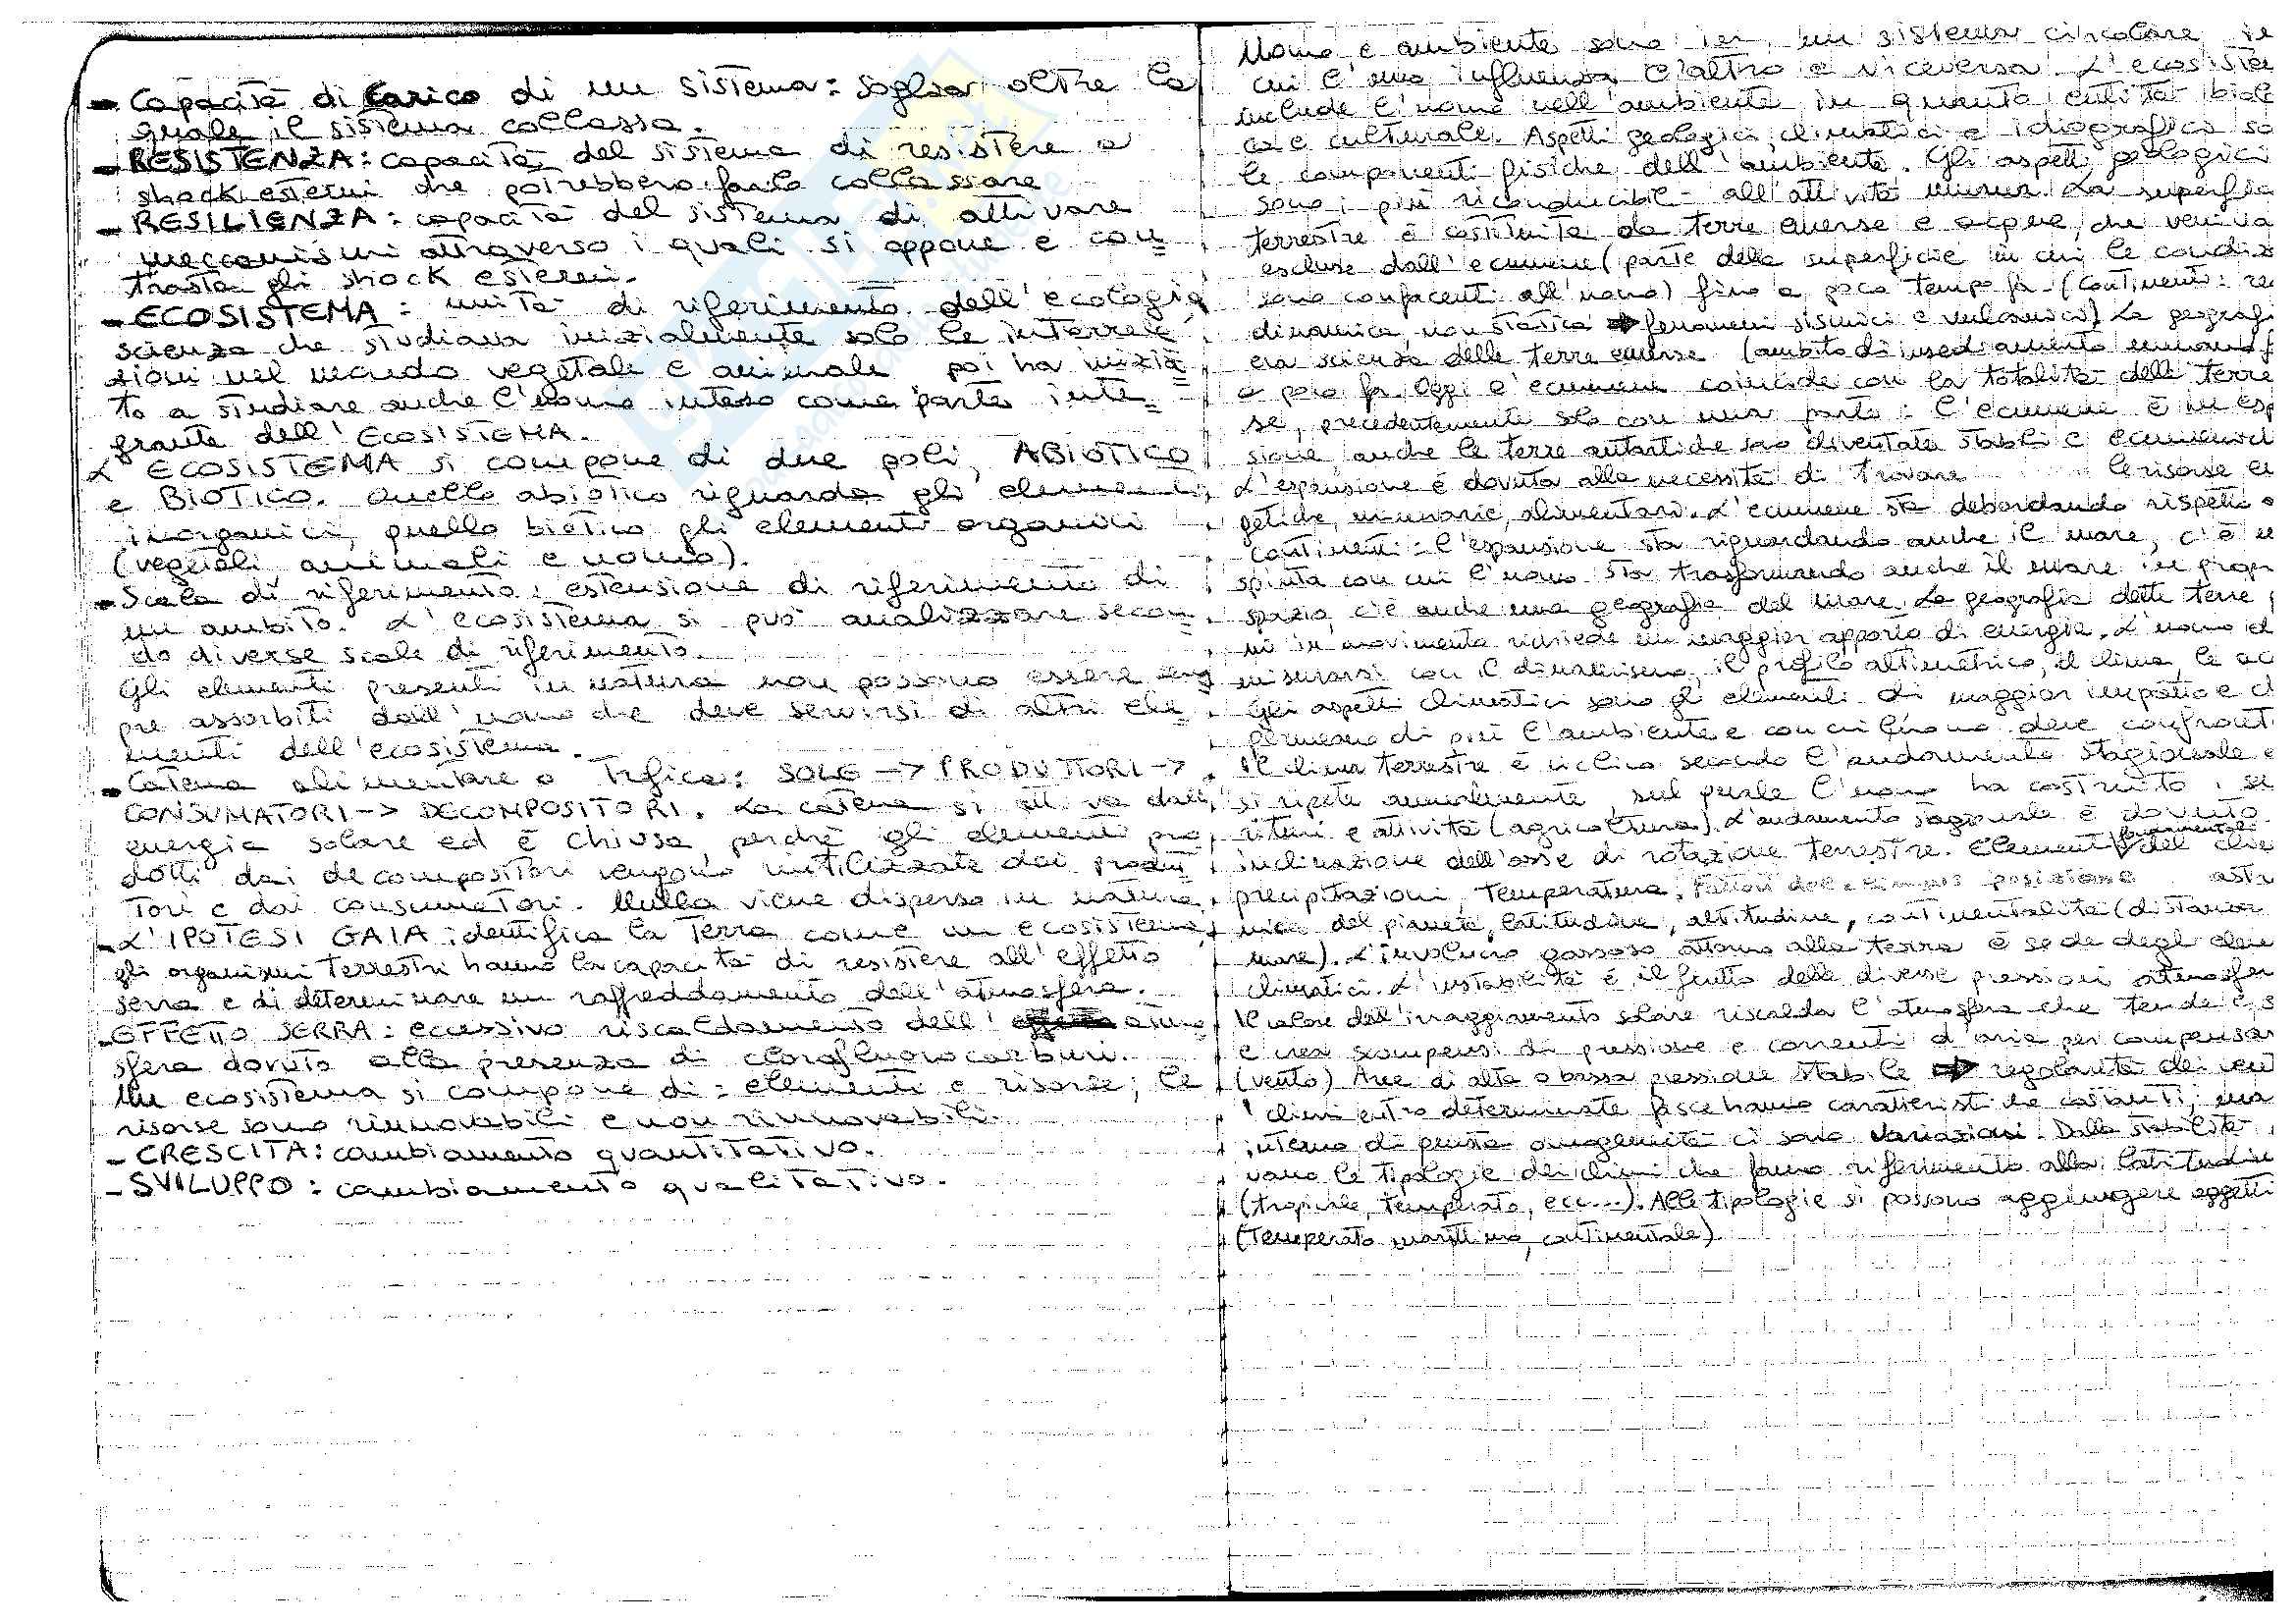 - Capacità di carico di un sistema: soglia oltre la
quale il sistema collassa.
- RESISTENZA: capacità del sistema di resistere a
shock esterni che potrebbero farlo collassare
- RESILIENZA: capacità del sistema di attivare
meccanismi attraverso i quali si oppone e con=
trasta gli shock esterni.
- ECOSISTEMA: unità di riferimento dell'ecologia
scienza che studiava inizialmente solo le interrela
zioni nel mondo vegetale e animale poi ha inizia=
to a studiare anche l'uomo inteso come parte inte=
grante dell'ECOSISTEMA.
L'ECOSISTEMA si compone di due poli, ABIOTICO
e BIOTICO. Quello abiotico riguarda gli elementi
inorganici, quello biotico gli elementi organici
(vegetali animali e uomo).
- Scala di riferimento: estensione di riferimento di
un ambito. L'ecosistema si può analizzare secon=
do diverse scale di riferimento.
Gli elementi presenti in natura non possono essere
pre assorbiti dall'uomo che deve servirsi di altri ele=
menti dell'ecosistema.
- Catena alimentare o Trofica: SOLE -> PRODUTTORI ->
CONSUMATORI -> DECOMPOSITORI. La catena si attiva dall'
energia solare ed è chiusa perchè gli elementi pro
dotti dai decompositori vengono riutilizzate dai produt=
tori e dai consumatori. Nulla viene disperso in natura.
- L'IPOTESI GAIA identifica la Terra come un ecosistema,
gli organismi terrestri hanno la capacità di resistere all'effetto
serra e di determinare un raffreddamento dell'atmosfera.
- EFFETTO SERRA: eccessivo riscaldamento dell' atmo
sfera dovuto alla presenza di clorofluorocarburi.
Un ecosistema si compone di: elementi e risorse; le
risorse sono rinnovabili e non rinnovabili.
- CRESCITA: cambiamento quantitativo.
- SVILUPPO: cambiamento qualitativo.
Uomo e ambiente sono in un sistema circolare in
cui l'uno influenza l'altro e viceversa. L'ecosiste
include l'uomo nell'ambiente in quanto entità biol
ca e culturale. Aspetti geologici, climatici e idrografici so
le componenti fisiche dell'ambiente. Gli aspetti geologici
sono i più riconducibili all'attività umana. La superfic
terrestre è costituita da terre emerse e acque che veniva
escluse dall'ecumene (parte della superficie in cui le condiz
sono confacenti all'uomo) fino a poco tempo fa. (Continenti: re
dinamica, non statica -> fenomeni sismici e vulcanici) La geografi
era scienza delle terre emerse (ambito di insediamento umano) f
a poco fa. Oggi l'ecumene coincide con la totalità delle terre
se, precedentemente solo con una parte: l'ecumene è in esp
sione anche le terre antartiche sono diventate stabili e
L'espansione è dovuta alla necessità di trovare le risorse en
getiche, minerarie, alimentari. L'ecumene sta debordando rispetto a
continenti: l'espansione sta riguardando anche il mare, c'è u
spinta con cui l'uomo sta trasformando anche il mare in propr
spazio c'è anche una geografia del mare. La geografia delle terre
in movimento richiede un maggior apporto di energia. L'uomo
misurarsi con il dinamismo, il profilo altimetrico, il clima, le ac
Gli aspetti climatici sono gli elementi di maggior impatto e c
permeano di più l'ambiente e con cui l'uomo deve confront
Il clima terrestre è ciclico secondo l'andamento stagionale e
si ripete annualmente, sul quale l'uomo ha costruito i su
ritmi e attività (agricoltura). L'andamento stagionale è dovuto
inclinazione dell'asse di rotazione terrestre. Elementi fondamentali del clim
precipitazioni, temperatura; Fattori del clima: posizione astro
mica del pianeta, latitudine, altitudine, continentalità (distanza
mare). L'involucro gassoso attorno alla terra è sede degli elem
climatici. L'instabilità è il frutto delle diverse pressioni atmosfer
Il calore dall'irraggiamento solare riscalda l'atmosfera che tende a s
e crea scompensi di pressione e correnti d'aria per compensar
(vento) Aree di alta o bassa pressione stabile -> regolarità dei ven
I climi entro determinate fasce hanno caratteristiche costanti, ma
interno di questa omogeneità ci sono variazioni. Dalla stabilità
vano le tipologie dei climi che fanno riferimento alla latitudin
(tropicale, temperato, ecc...). Alle tipologie si possono aggiungere aggetti
(Temperato marittimo, continentale)